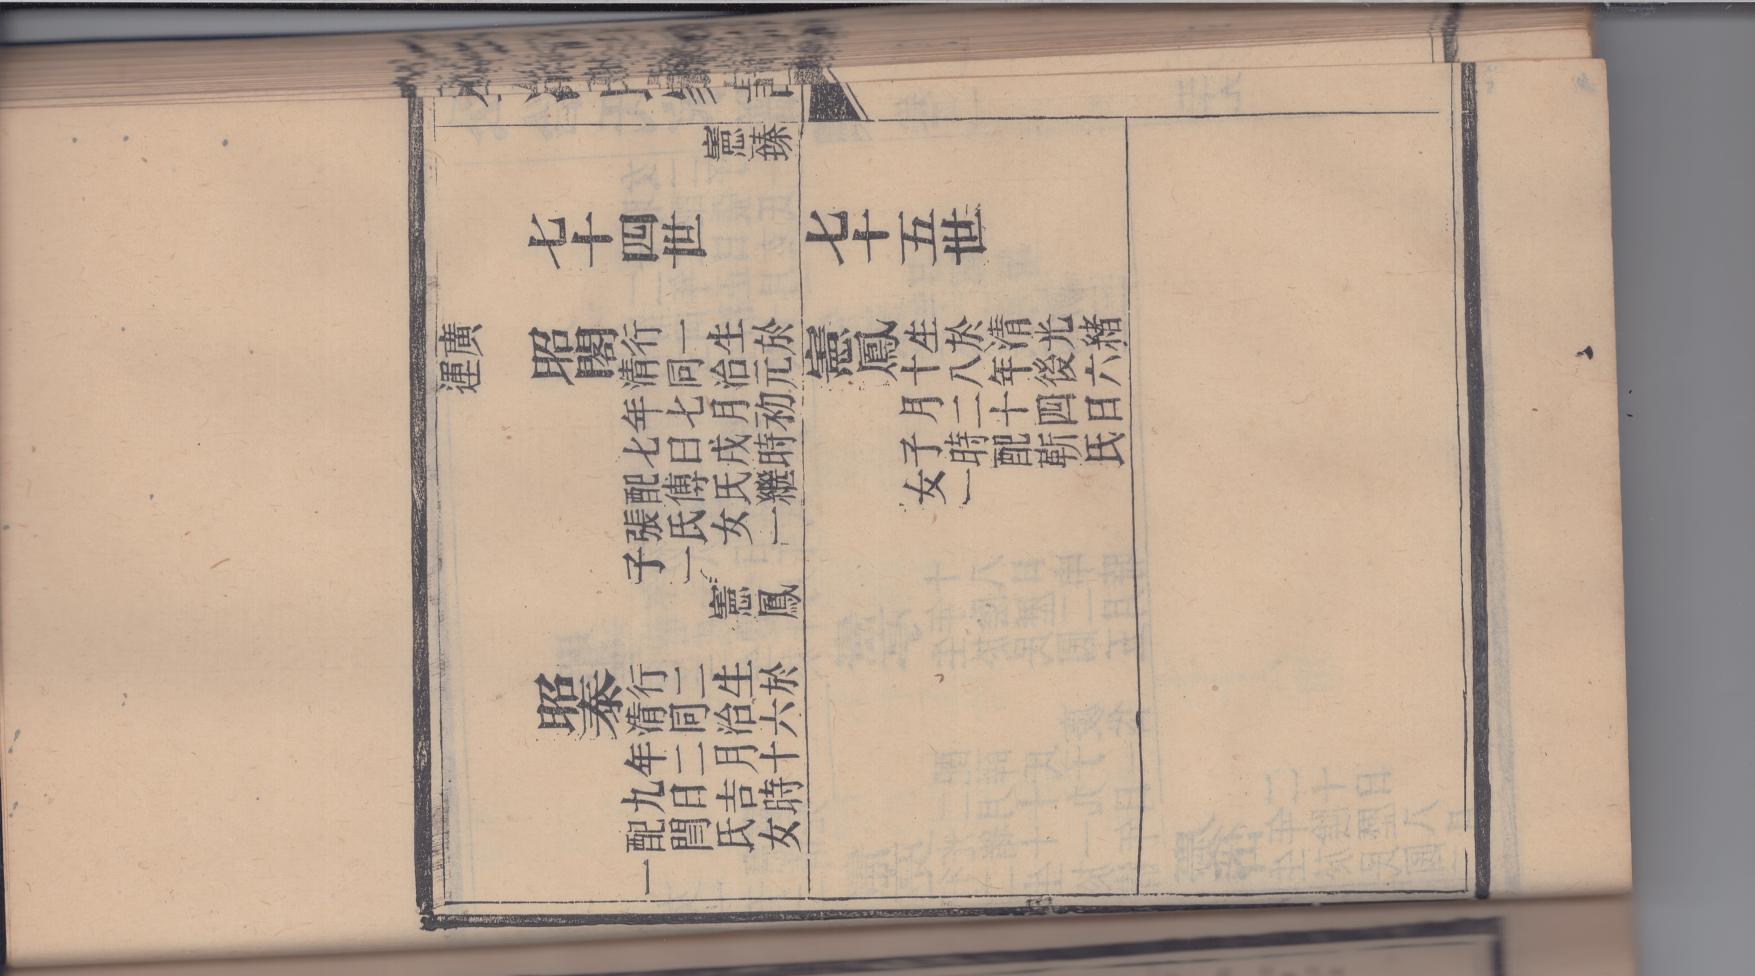 憲臻
七十四世
七十五世
廣
運
昭閣
行一生於
清同治元
年七月初
七日戌時
配傅氏繼
張氏女一
子一
憲鳳
憲鳳
生於清光緒
十八年後六
月二十四日
子時配靳氏
女一
昭泰
行二生於
清同治六
年二月十
九日吉時
配閆氏女
一